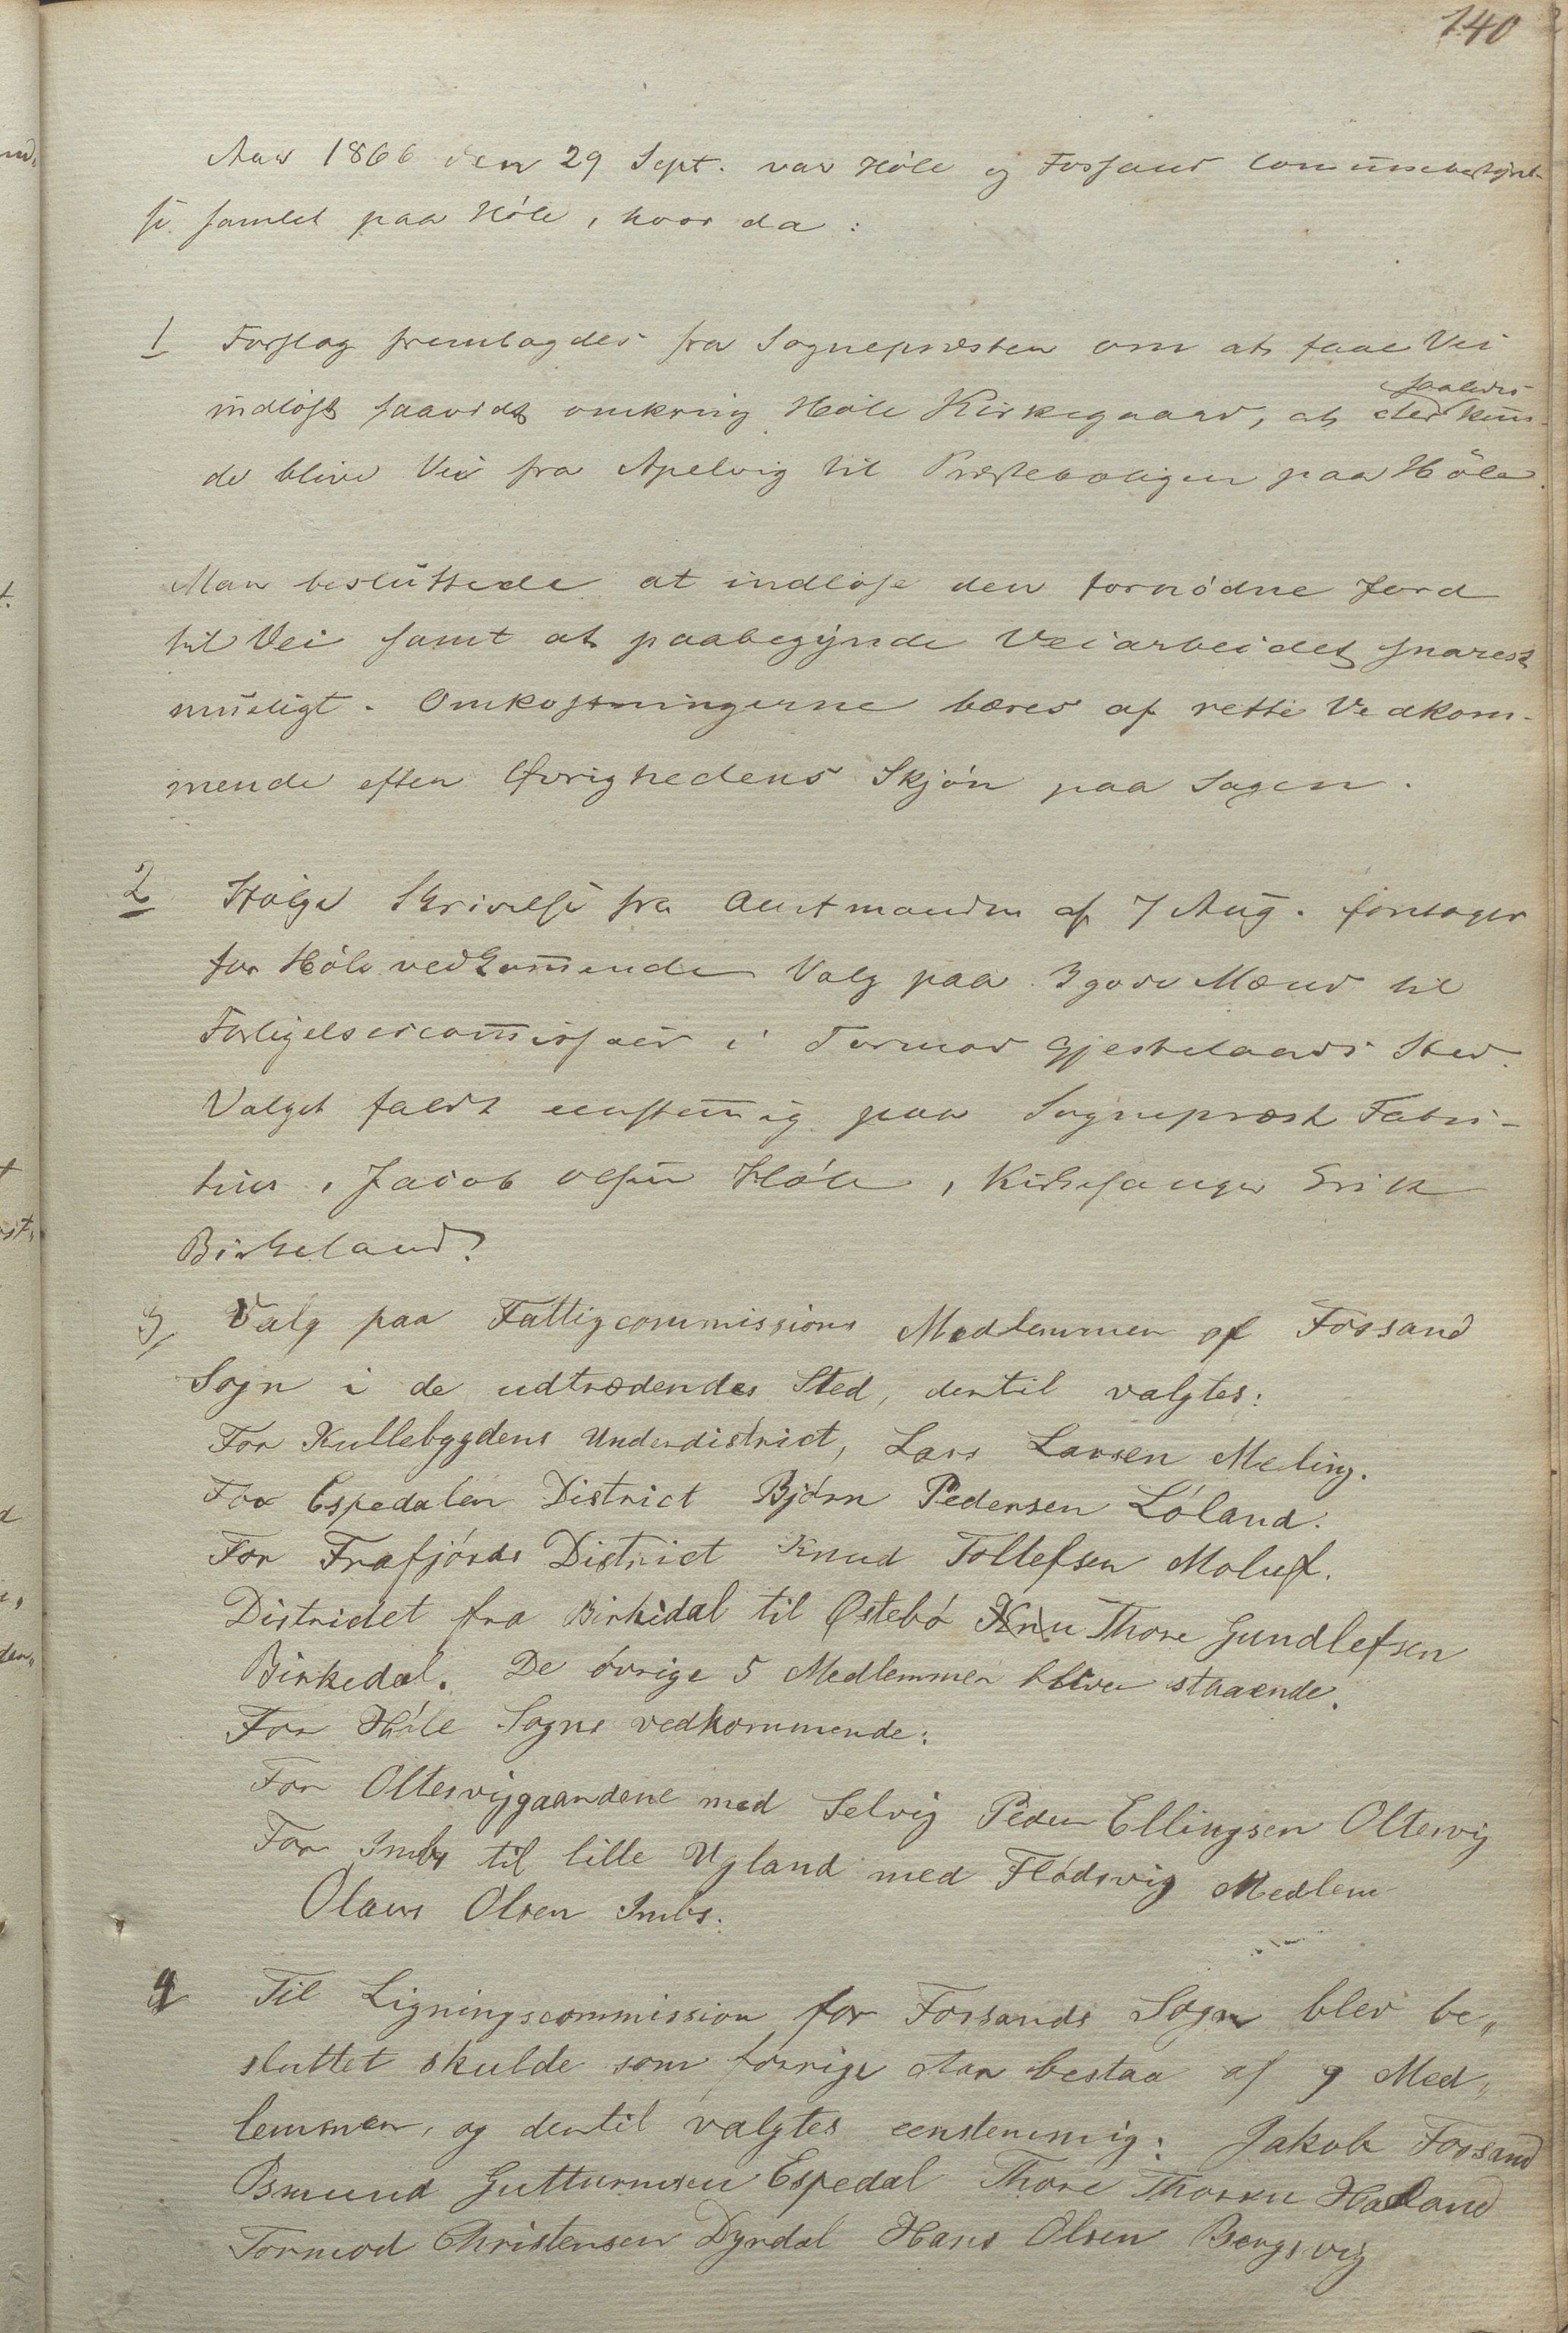 140
Aar 1866 den 29 Sept. var Höle og Fossand Communebestyrel-
se samlet paa Höle, hvor da:
1 Forslag fremlagdes fra Sognepræsten om at faae Vei
indlöst saavidt omkring Höle Kirkegaard, at der saaledes kun-
de blive Vei fra Apelvig til Præsteboligen paa Höle.
Man besluttede at indlöse den fornödne Jord
til Vei samt at paabegynde Veiarbeidet snarest
muligt. Omkostningerne bæres af rette Vedkom-
mende efter Øvrighedens Skjön paa Sagen.
2 Ifölge Skrivelse fra Amtmanden af 7 Aug. foretages
for Höle vedkommende Valg paa 3 gode Mænd til
Forligelsescommissair i Tormod Gjeskelands Sted.
Valget faldt eenstemig paa Sognepræst Fabri-
tius, Jacob Olsen Höle, Kirkesanger Erik
Birkeland.
3, Valg paa Fattigcommissions Medlemmer af Fossand
Sogn i de udtrædendes Sted, dertil valgtes:
For Kullebygdens Underdistrict, Lars Larsen Meling.
For Espedalen District Björn Pedersen Löland.
For Frafjords District Knud Tollefsen Moluf.
Districtet fra Birkidal til Østebö Knu Thore Gundlefsen
Birkedal. De övrige 5 Medlemmer bliver staaende.
For Höle Sogns vedkommende:
For Oltesviggaardene med Selvig Peder Ellingsen Oltesvig
For Imbs til lille Ugland med Flödsvig Medlem
Olaus Olsen Imbs.
4 Til Ligningscommission for Forsands Sogn blev be„
sluttet skulde som forrige Aar bestaa af 9 Med„
lemmer, og dertil valgtes eenstemmig: Jakob Fossand
Osmund Gutturmsen Espedal Thore Thorsen Haaland
Tormod Christensen Dyrdal Hans Olsen Bergsvig